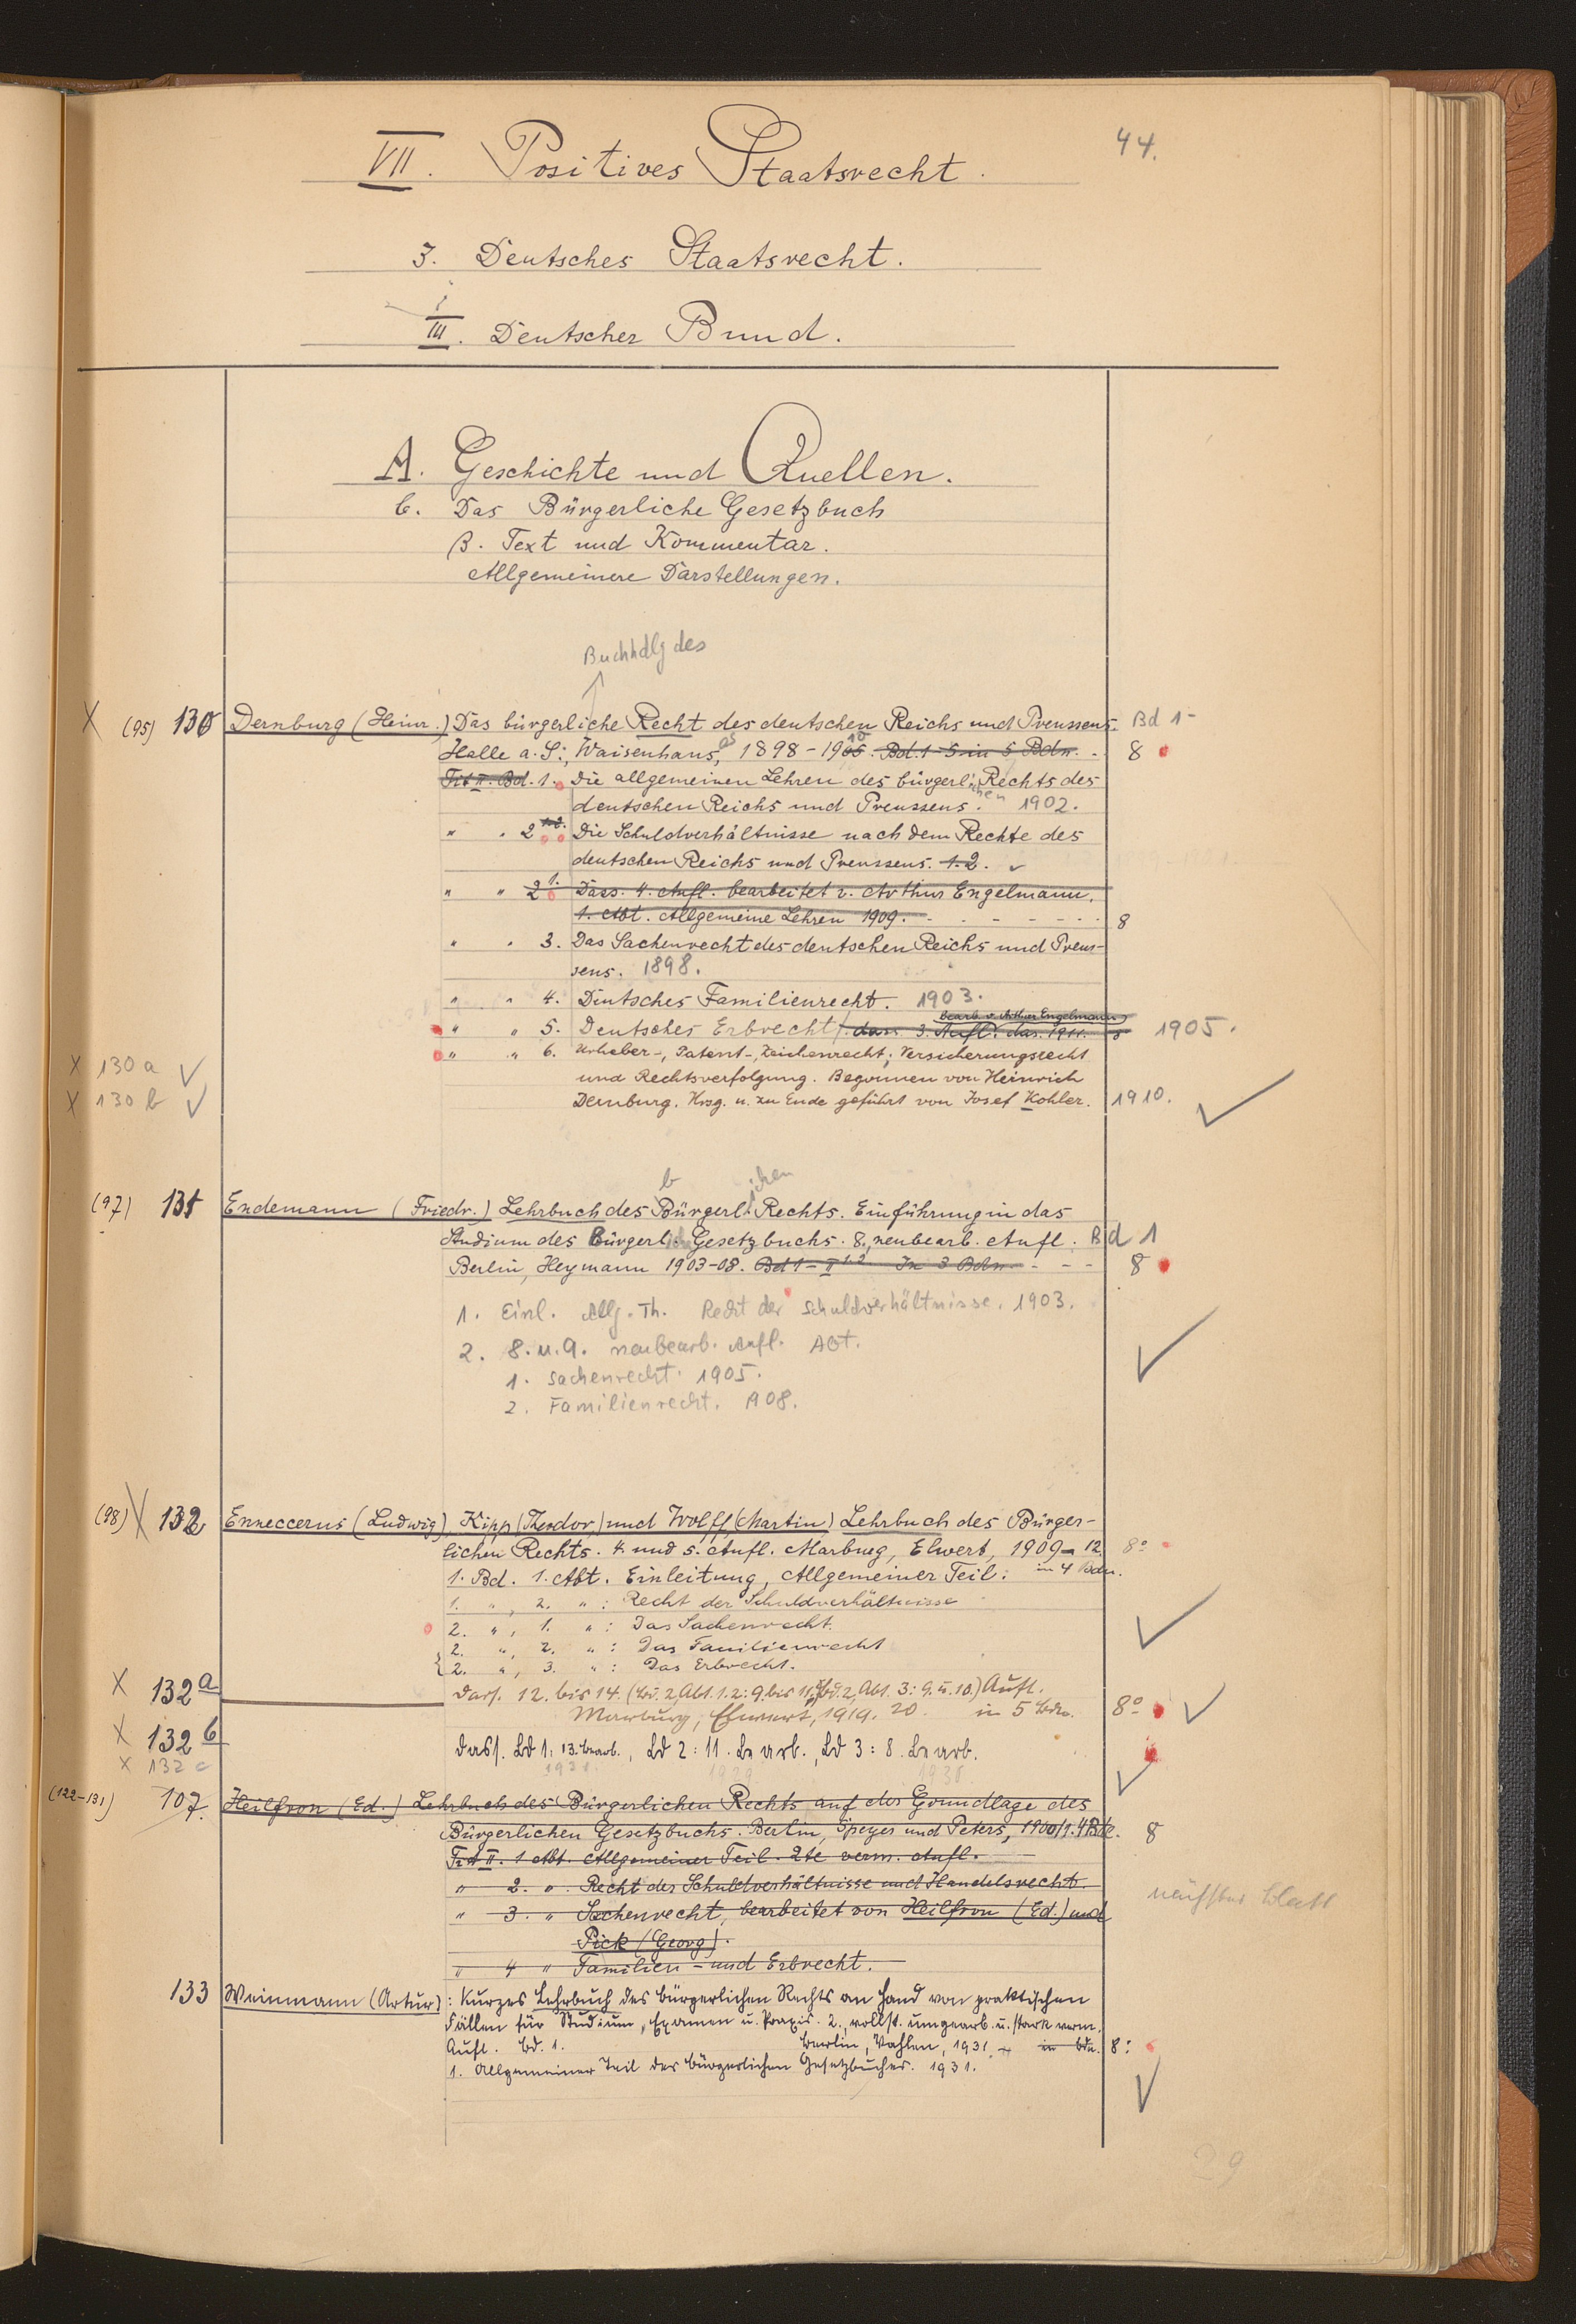 44.
VII. Positives Staatsrecht.
3. Deutsches Staatsrecht.
III. Deutscher Bund.
A. Geschichte und Quellen.
b. Das Bürgerliche Gesetzbuch
β. Text und Kommentar.
Allgemeinere Darstellungen.
Buchhdlg des
X (95) 130 Dernburg (Heinr.) Das bürgerliche Recht des deutschen Reichs und Preussens. Bd 1-
Halle a. S., Waisenhaus, 1898-1905. Bd. 1-5 in 5 Bdn. - 8
Tit II. Bd. 1. Die allgemeinen Lehren des bürgerlichen Rechts des
deutschen Reichs und Preussens. 1902.
" " 2 Die Schuldverhältnisse nach dem Rechte des
deutschen Reichs und Preussens. 1.2.
" " 2 1. Dass. 4. Aufl. bearbeitet v. Arthur Engelmann.
1. Abt. Allgemeine Lehren 1909. - - - - - 8
" " 3. Das Sachenrecht des deutschen Reichs und Preus-
sens. 1898.
" " 4. Deutsches Familienrecht. 1903.
bearb. v. Arthur Engelmann
" " 5. Deutsches Erbrecht. dass. 3. Aufl. das. 1911. 8 1905.
" " 6. Urheber-, Patent-, Zeichenrecht; Versicherungsrecht
X 130 a
und Rechtsverfolgung. Begonnen von Heinrich
X 130 b
Dernburg. Hrsg. u. zu Ende geführt von Josef Kohler. 1910.
b ichen
(97) 131 Endemann (Friedr.) Lehrbuch des Bürgerl. Rechts. Einführung in das
Studium des Bürgerl. Gesetzbuchs. 8., neubearb. Aufl. Bd 1
Berlin, Heymann 1903-08. Bd 1-II 1.2 In 3 Bdn. - - - 8
1. Einl. Allg. Th. Recht der Schuldverhältnisse. 1903.
2. 8. u. 9. neubearb. Aufl. Abt.
1. Sachenrecht. 1905.
2. Familienrecht. 1908.
(98) X 132 Enneccerus (Ludwig), Kipp (Theodor) und Wolff (Martin) Lehrbuch des Bürger-
lichen Rechts. 4. und 5. Aufl. Marburg, Elwert, 1909-12. 8°
in 4 Bdn.
1. Bd. 1. Abt. Einleitung, Allgemeiner Teil.
1. ", 2. " : Recht der Schuldverhältnisse
2. ", 1. " : Das Sachenrecht.
2. ", 2. " : Das Familienrecht
2. ", 3. " : Das Erbrecht.
X 132 a Dass. 12. bis 14. (Bd. 2, Abt. 1.2: 9. bis 11., Bd. 2, Abt. 3: 9. u. 10.) Aufl.
Marburg, Elwert, 1919. 20. in 5 Bdn. 8°
X 132 b Dass. Bd 1: 13. Bearb., Bd 2: 11. Bearb., Bd 3: 8. Bearb.
X 132 c 1931. 1929 1930
(122-131) 107. Heilfron (Ed.) Lehrbuch des Bürgerlichen Rechts auf der Grundlage des
Bürgerlichen Gesetzbuchs. Berlin, Speyer und Peters, 1900/1. 4 Bde. 8
Tit II. 1 Abt. Allgemeiner Teil. 2te verm. Aufl.
" 2. " Recht der Schuldverhältnisse und Handelsrecht.
" 3. " Sachenrecht, bearbeitet von Heilfron (Ed.) und
nächstes Blatt
Pick (Georg).
" 4 " Familien- und Erbrecht.
133 Weinmann (Artur): Kurzes Lehrbuch des bürgerlichen Rechts an Hand von praktischen
Fällen für Studium, Examen u. Praxis. 2., vollst. umgearb. u. stark verm.
Aufl. Bd. 1. Berlin, Vahlen, 1931 in Bdn. 8:
1. Allgemeiner Teil des bürgerlichen Gesetzbuches. 1931.
29